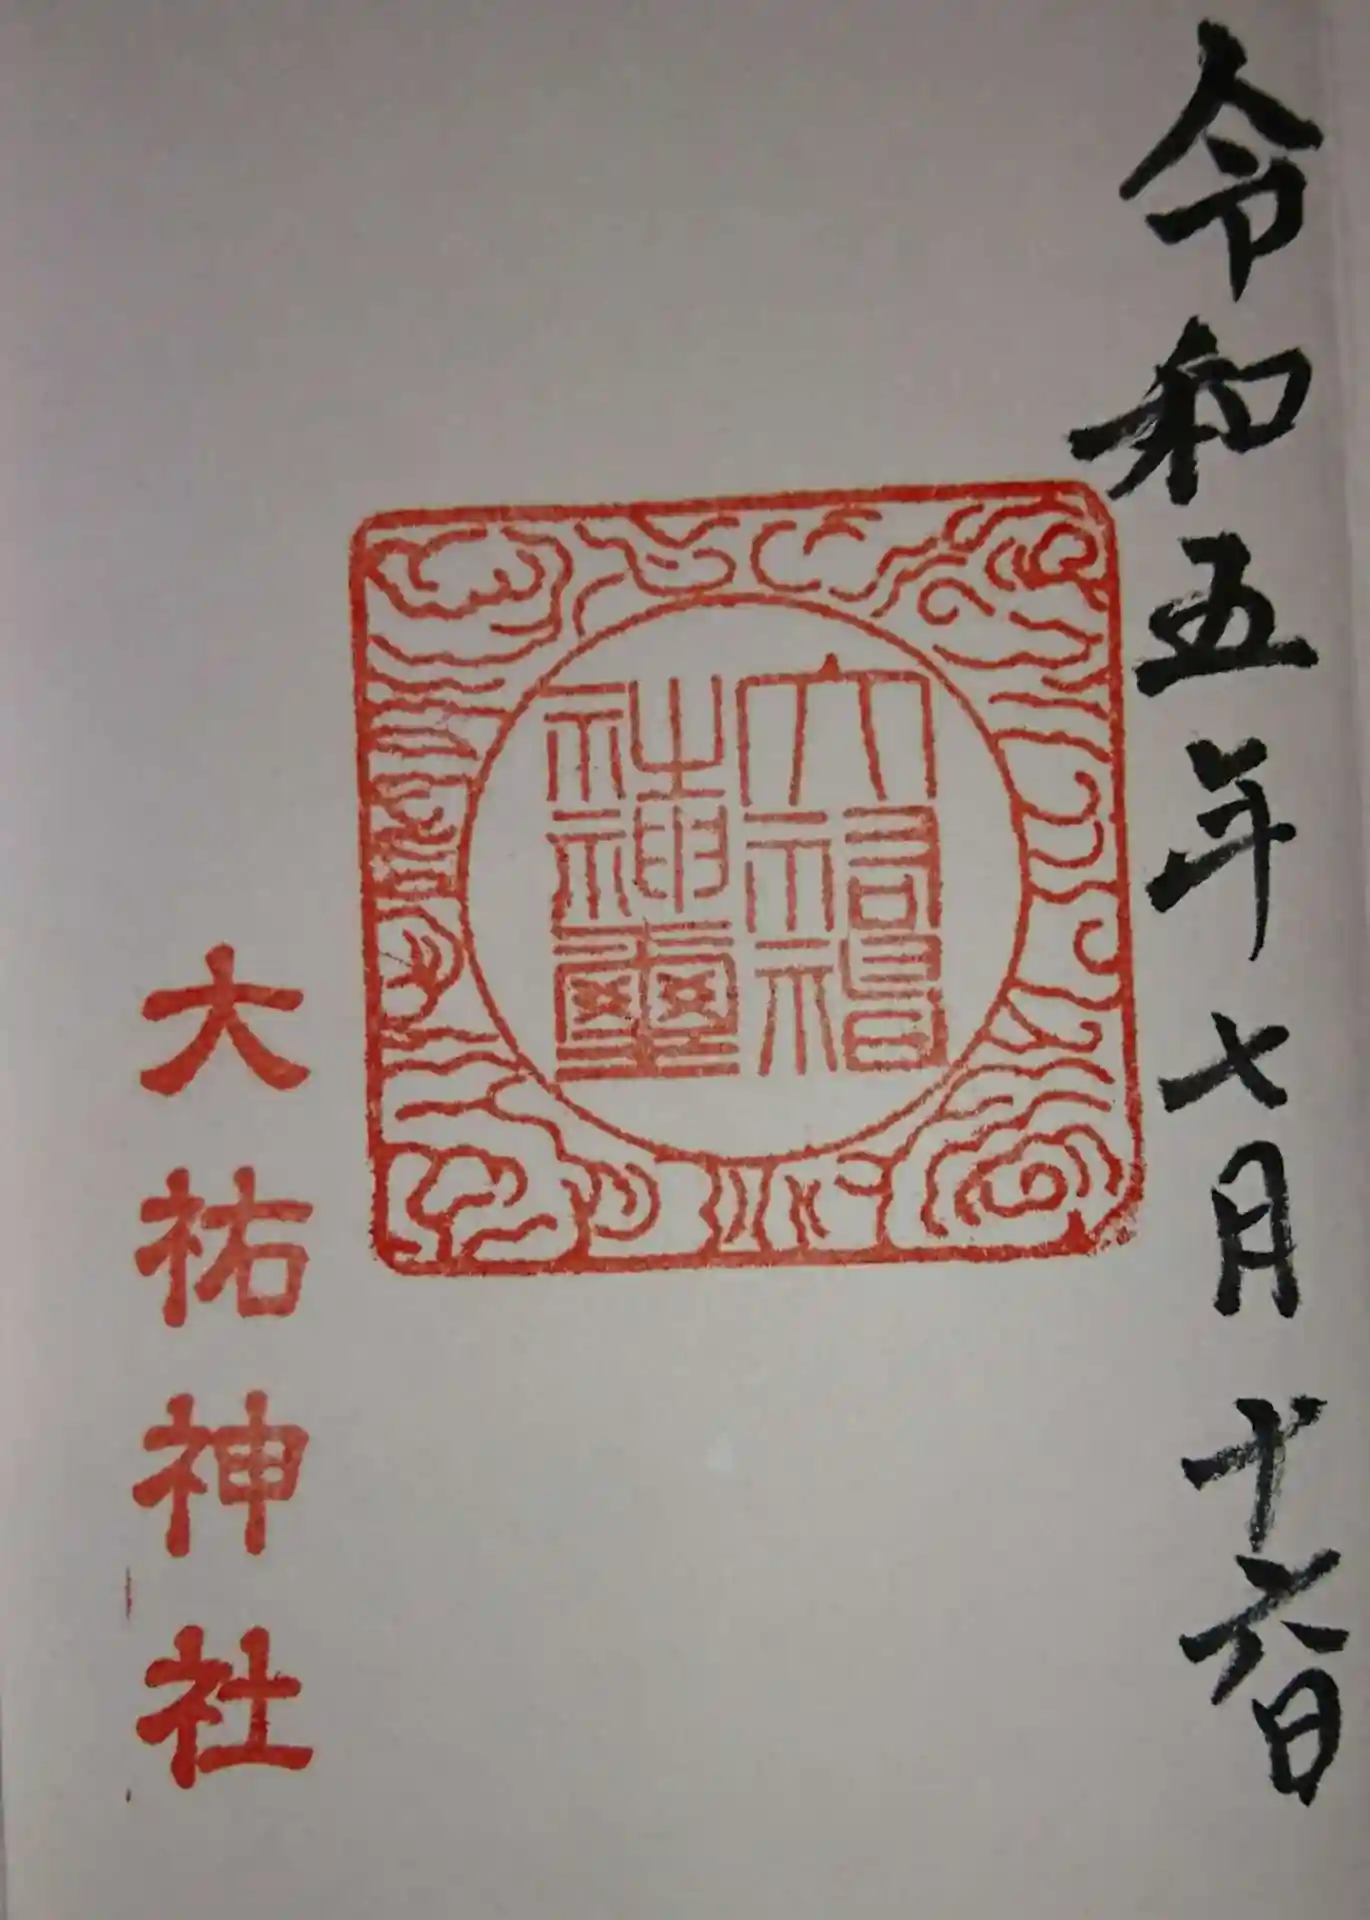 令和五年七月十六日
大祐神
社神璽
大祐神社